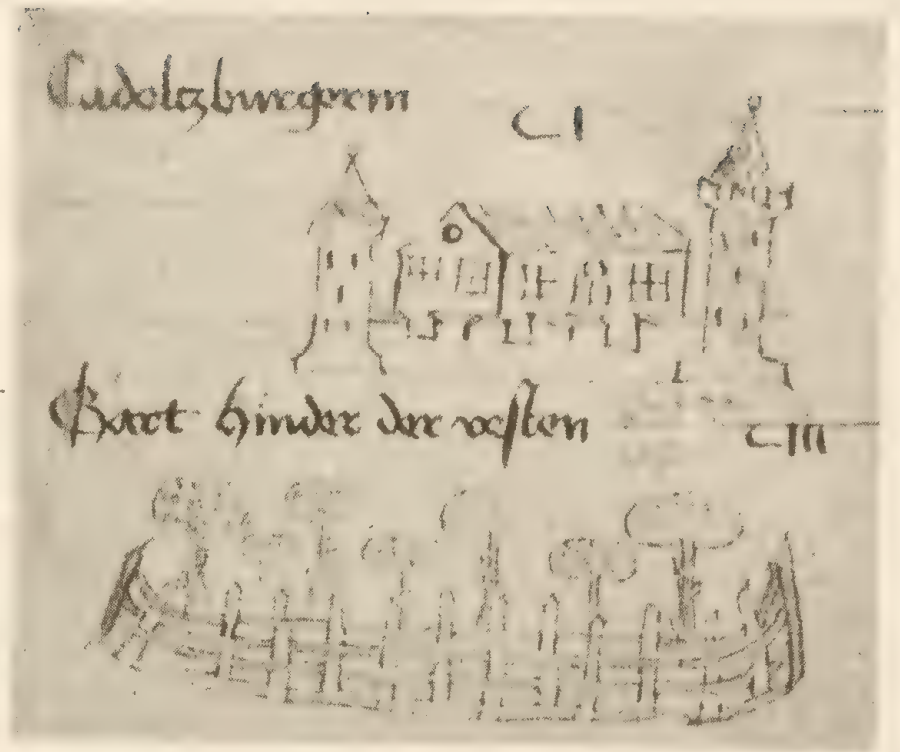 Cadoltzburgerin
CI
Gart hinder der vesten
CIII